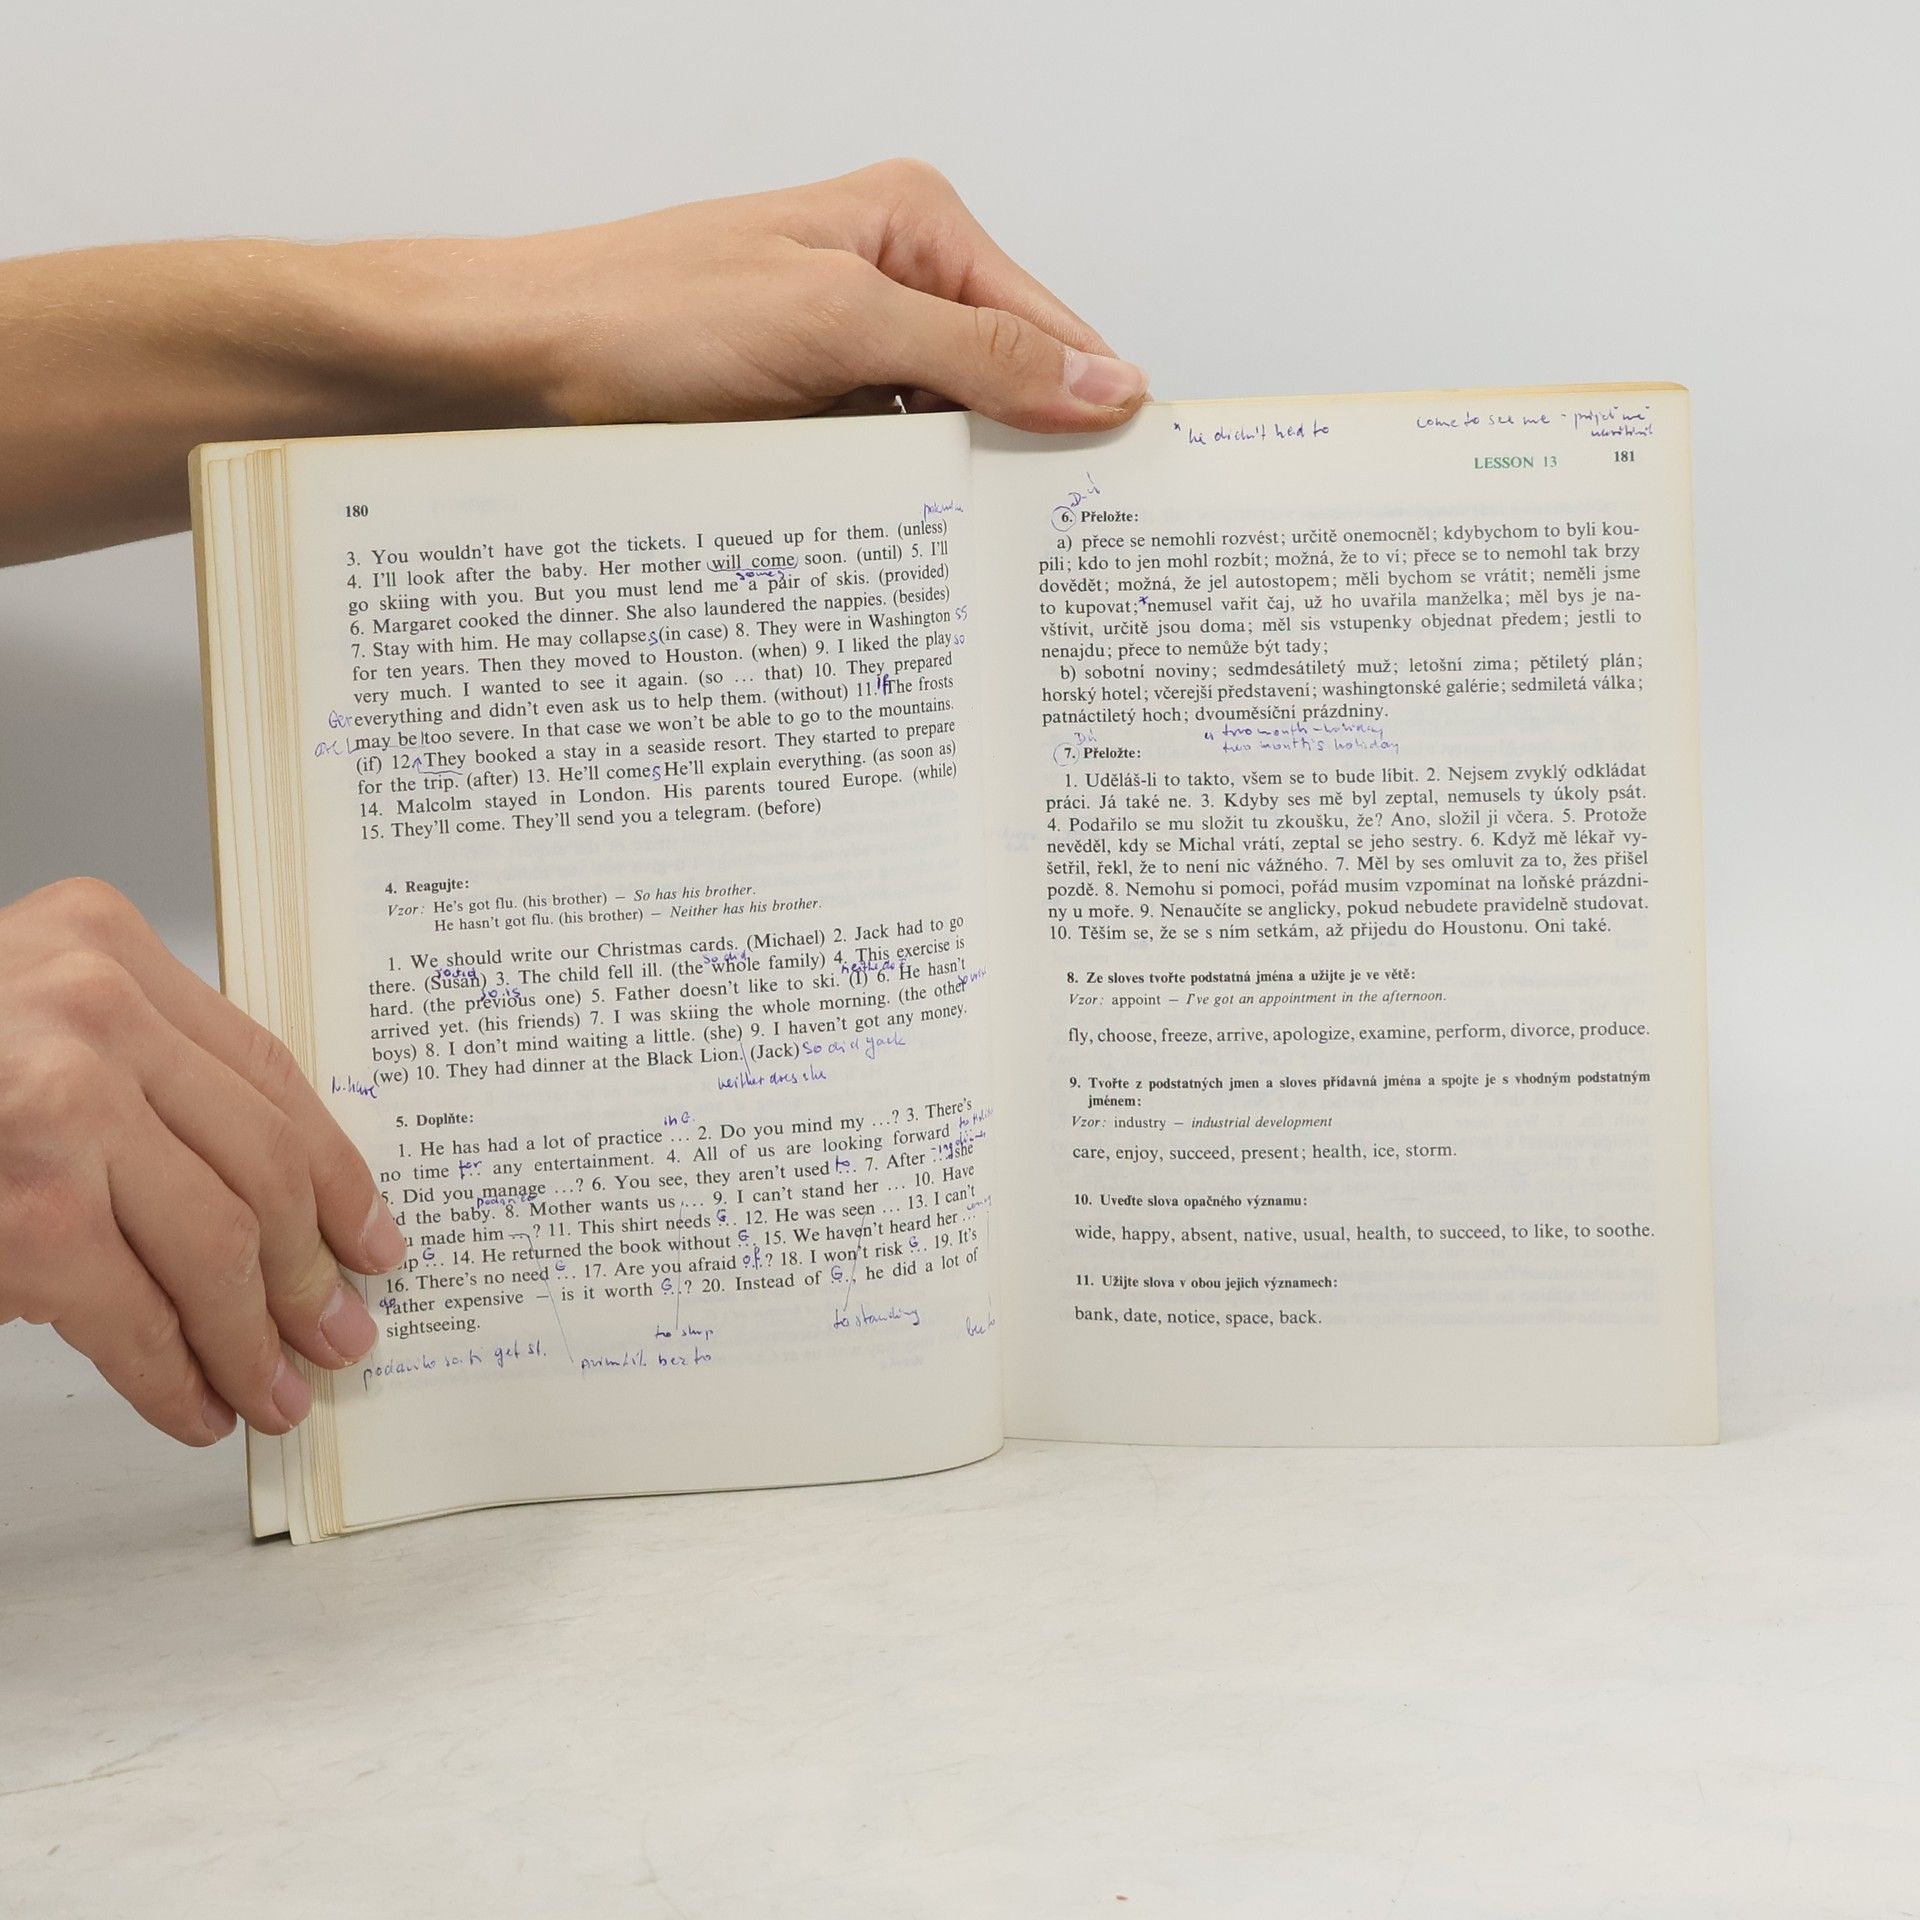 180
3. You wouldn't have got the tickets. I queued up for them. (unless)
4. I'll look after the baby. Her mother will come soon. (until) 5. I'll
go skiing with you. But you must lend me a pair of skis. (provided)
6. Margaret cooked the dinner. She also laundered the nappies. (besides)
7. Stay with him. He may collapse (in case) 8. They were in Washington
for ten years. Then they moved to Houston. (when) 9. I liked the play
very much. I wanted to see it again. (so ... that) 10. They prepared
everything and didn't even ask us to help them. (without) 11. If The frosts
may be too severe. In that case we won't be able to go to the mountains.
(if) 12. They booked a stay in a seaside resort. They started to prepare
for the trip. (after) 13. He'll come He'll explain everything. (as soon as)
14. Malcolm stayed in London. His parents toured Europe. (while)
15. They'll come. They'll send you a telegram. (before)
4. Reagujte:
Vzor: He's got flu. (his brother) – So has his brother.
He hasn't got flu. (his brother) – Neither has his brother.
1. We should write our Christmas cards. (Michael) 2. Jack had to go
so did
there. (Susan) 3. The child fell ill. (the whole family) 4. This exercise is
so is
hard. (the previous one) 5. Father doesn't like to ski. (I) 6. He hasn't
arrived yet. (his friends) 7. I was skiing the whole morning. (the other
boys) 8. I don't mind waiting a little. (she) 9. I haven't got any money.
(we) 10. They had dinner at the Black Lion. (Jack) So did Jack
N. have neither does she
5. Doplňte:
in G.
1. He has had a lot of practice ... 2. Do you mind my ...? 3. There's
no time for any entertainment. 4. All of us are looking forward
5. Did you manage ...? 6. You see, they aren't used to ... 7. After ... she
d the baby. 8. Mother wants us ... 9. I can't stand her ... 10. Have
u made him ...? 11. This shirt needs G... 12. He was seen ... 13. I can't
lp G... 14. He returned the book without G... 15. We haven't heard her ...
16. There's no need G... 17. Are you afraid of? 18. I won't risk G... 19. It's
rather expensive – is it worth G...? 20. Instead of G..., he did a lot of
sightseeing.
to standing
get st. bez to
* he didn't had to come to see me -
LESSON 13 181
6. Přeložte:
a) přece se nemohli rozvést; určitě onemocněl; kdybychom to byli kou-
pili; kdo to jen mohl rozbít; možná, že to ví; přece se to nemohl tak brzy
dovědět; možná, že jel autostopem; měli bychom se vrátit; neměli jsme
to kupovat; *nemusel vařit čaj, už ho uvařila manželka; měl bys je na-
vštívit, určitě jsou doma; měl sis vstupenky objednat předem; jestli to
nenajdu; přece to nemůže být tady;
b) sobotní noviny; sedmdesátiletý muž; letošní zima; pětiletý plán;
horský hotel; včerejší představení; washingtonské galérie; sedmiletá válka;
patnáctiletý hoch; dvouměsíční prázdniny.
a two month-holiday
two month's holiday
7. Přeložte:
1. Uděláš-li to takto, všem se to bude líbit. 2. Nejsem zvyklý odkládat
práci. Já také ne. 3. Kdyby ses mě byl zeptal, nemusels ty úkoly psát.
4. Podařilo se mu složit tu zkoušku, že? Ano, složil ji včera. 5. Protože
nevěděl, kdy se Michal vrátí, zeptal se jeho sestry. 6. Když mě lékař vy-
šetřil, řekl, že to není nic vážného. 7. Měl by ses omluvit za to, žes přišel
pozdě. 8. Nemohu si pomoci, pořád musím vzpomínat na loňské prázdni-
ny u moře. 9. Nenaučíte se anglicky, pokud nebudete pravidelně studovat.
10. Těším se, že se s ním setkám, až přijedu do Houstonu. Oni také.
8. Ze sloves tvořte podstatná jména a užijte je ve větě:
Vzor: appoint – I've got an appointment in the afternoon.
fly, choose, freeze, arrive, apologize, examine, perform, divorce, produce.
9. Tvořte z podstatných jmen a sloves přídavná jména a spojte je s vhodným podstatným
jménem:
Vzor: industry – industrial development
care, enjoy, succeed, present; health, ice, storm.
10. Uveďte slova opačného významu:
wide, happy, absent, native, usual, health, to succeed, to like, to soothe.
11. Užijte slova v obou jejich významech:
bank, date, notice, space, back.